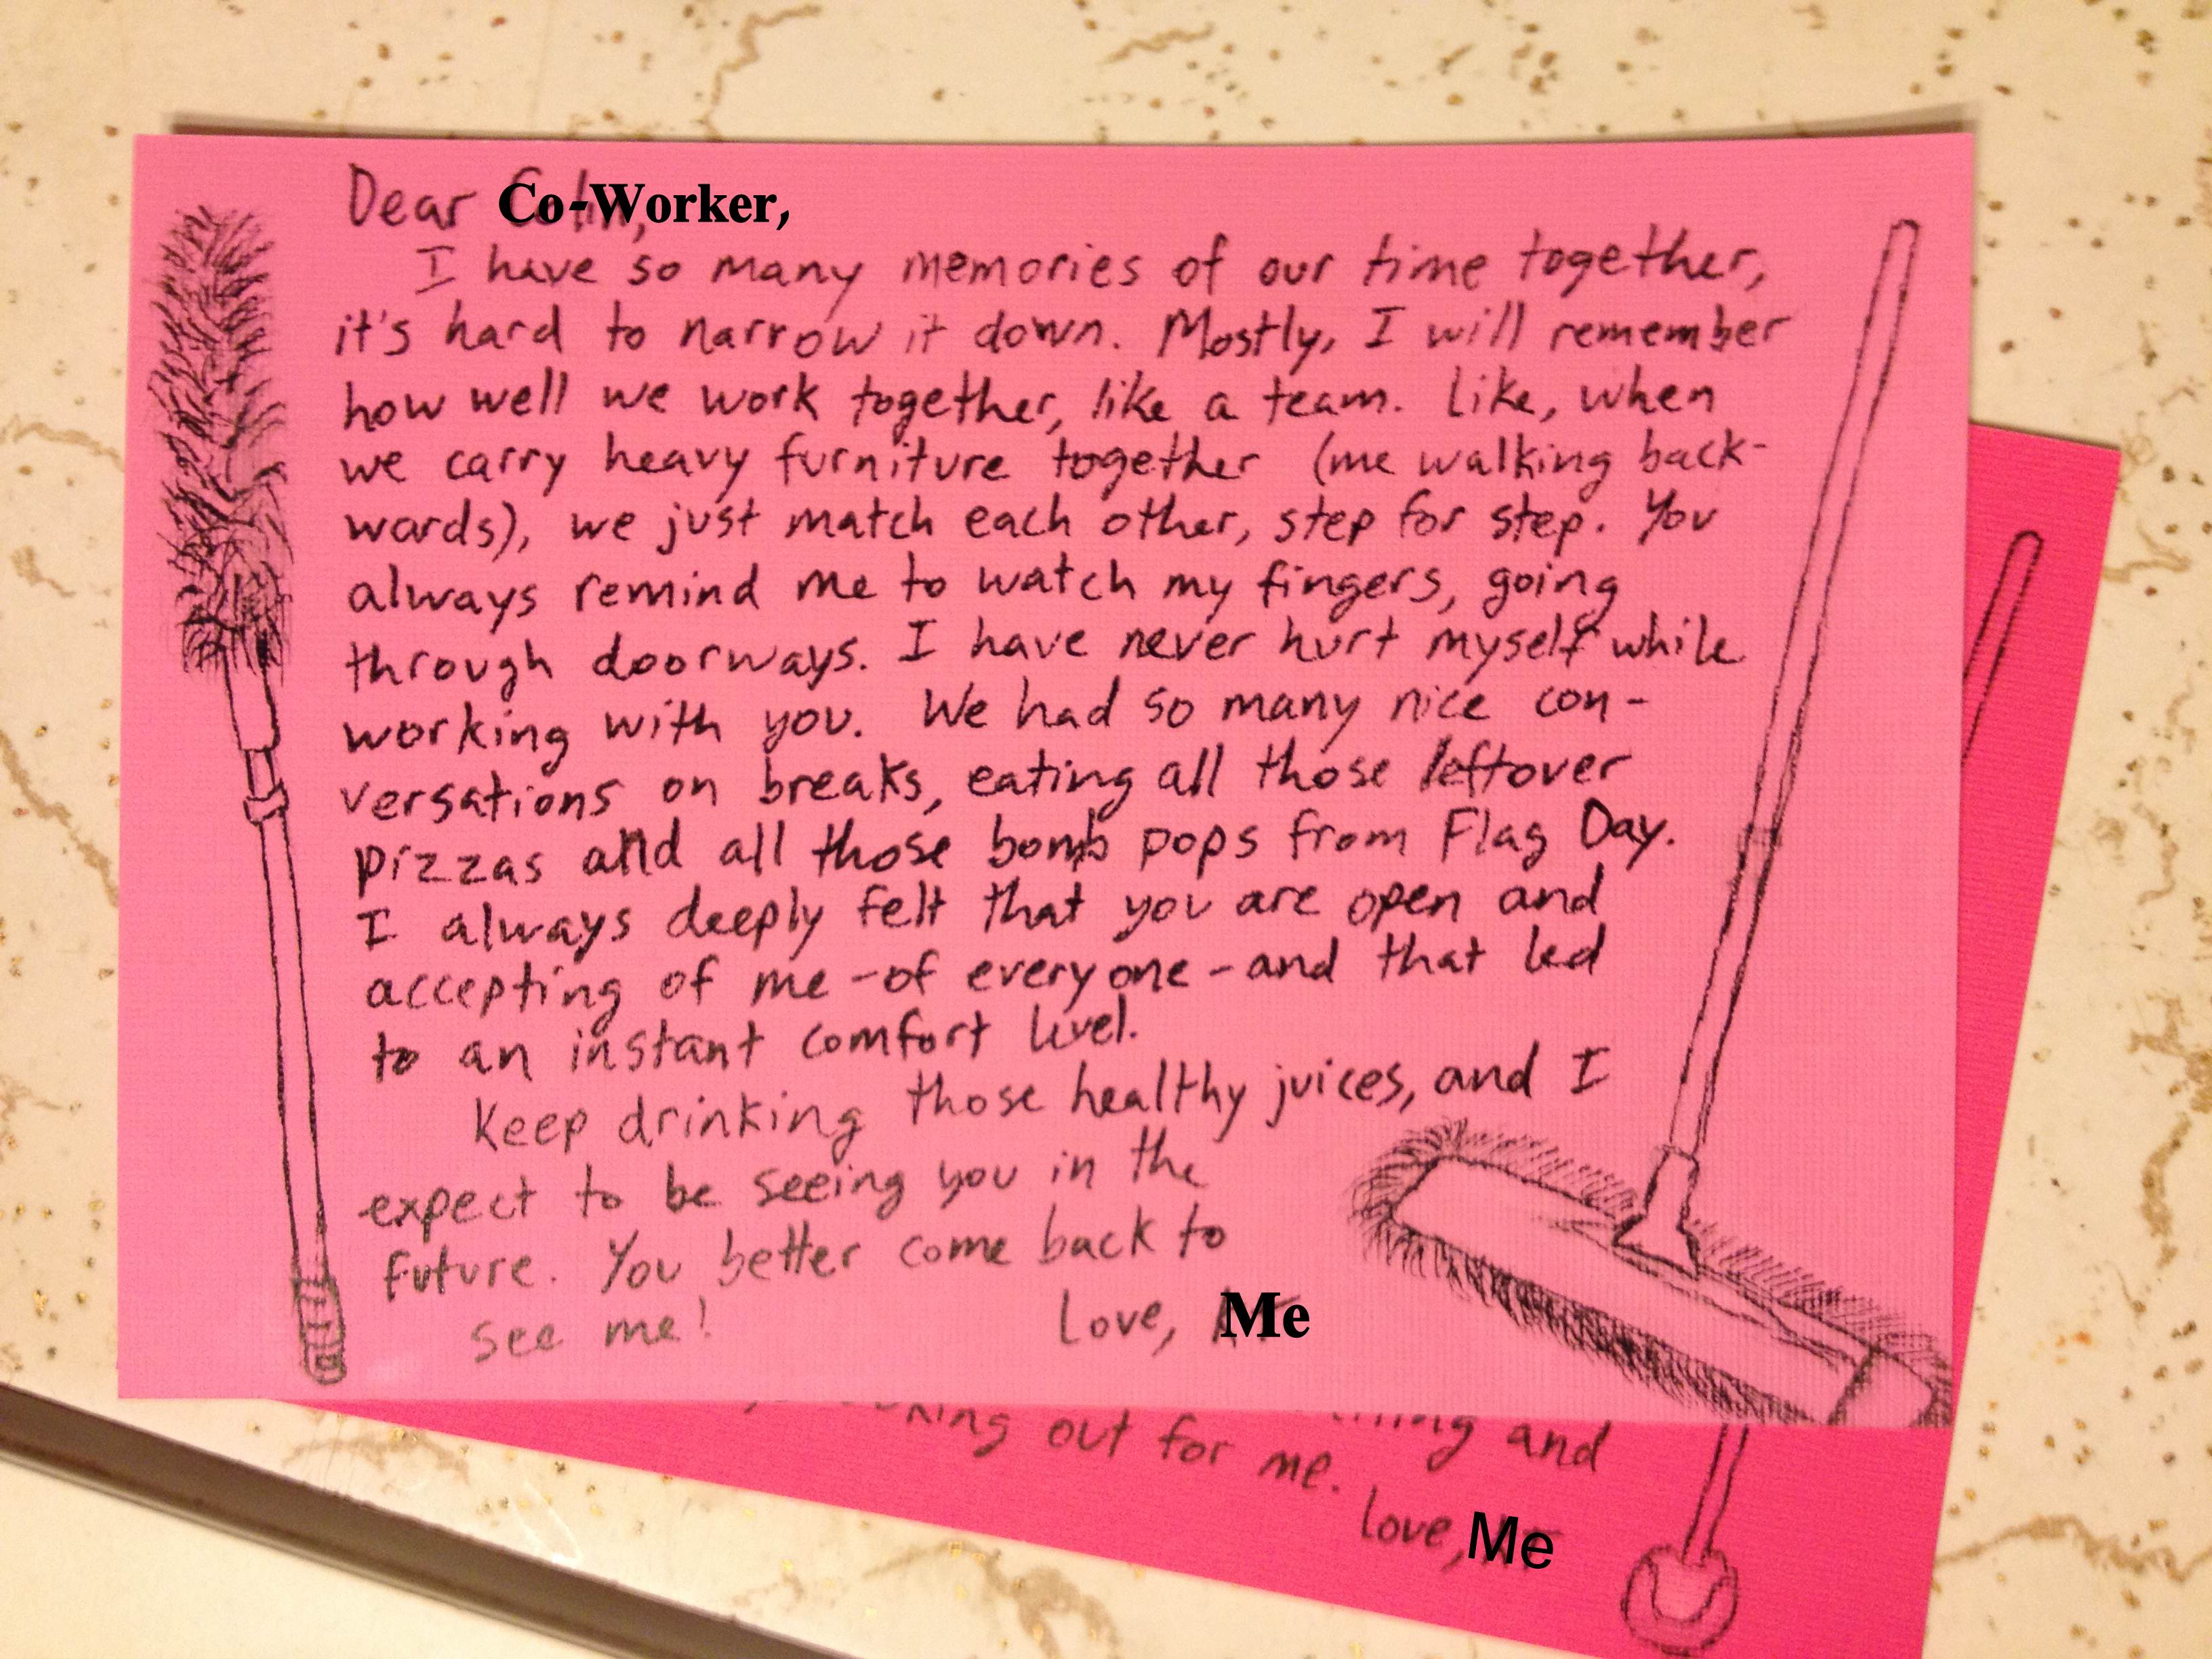 Dear Co-Worker,
I have so many memories of our time together,
it's hard to narrow it down. Mostly, I will remember
how well we work together, like a team. Like, when
we carry heavy furniture together (me walking back-
wards), we just match each other, step for step. You
always remind me to watch my fingers, going
through doorways. I have never hurt myself while
working with you. We had so many nice con-
versations on breaks, eating all those leftover
pizzas and all those bomb pops from Flag Day.
I always deeply felt that you are open and
accepting of me - of everyone - and that led
to an instant comfort level.
Keep drinking those healthy juices, and I
expect to be seeing you in the
future. You better come back to
see me!
Love, Me
and
out for me.
Love, Me